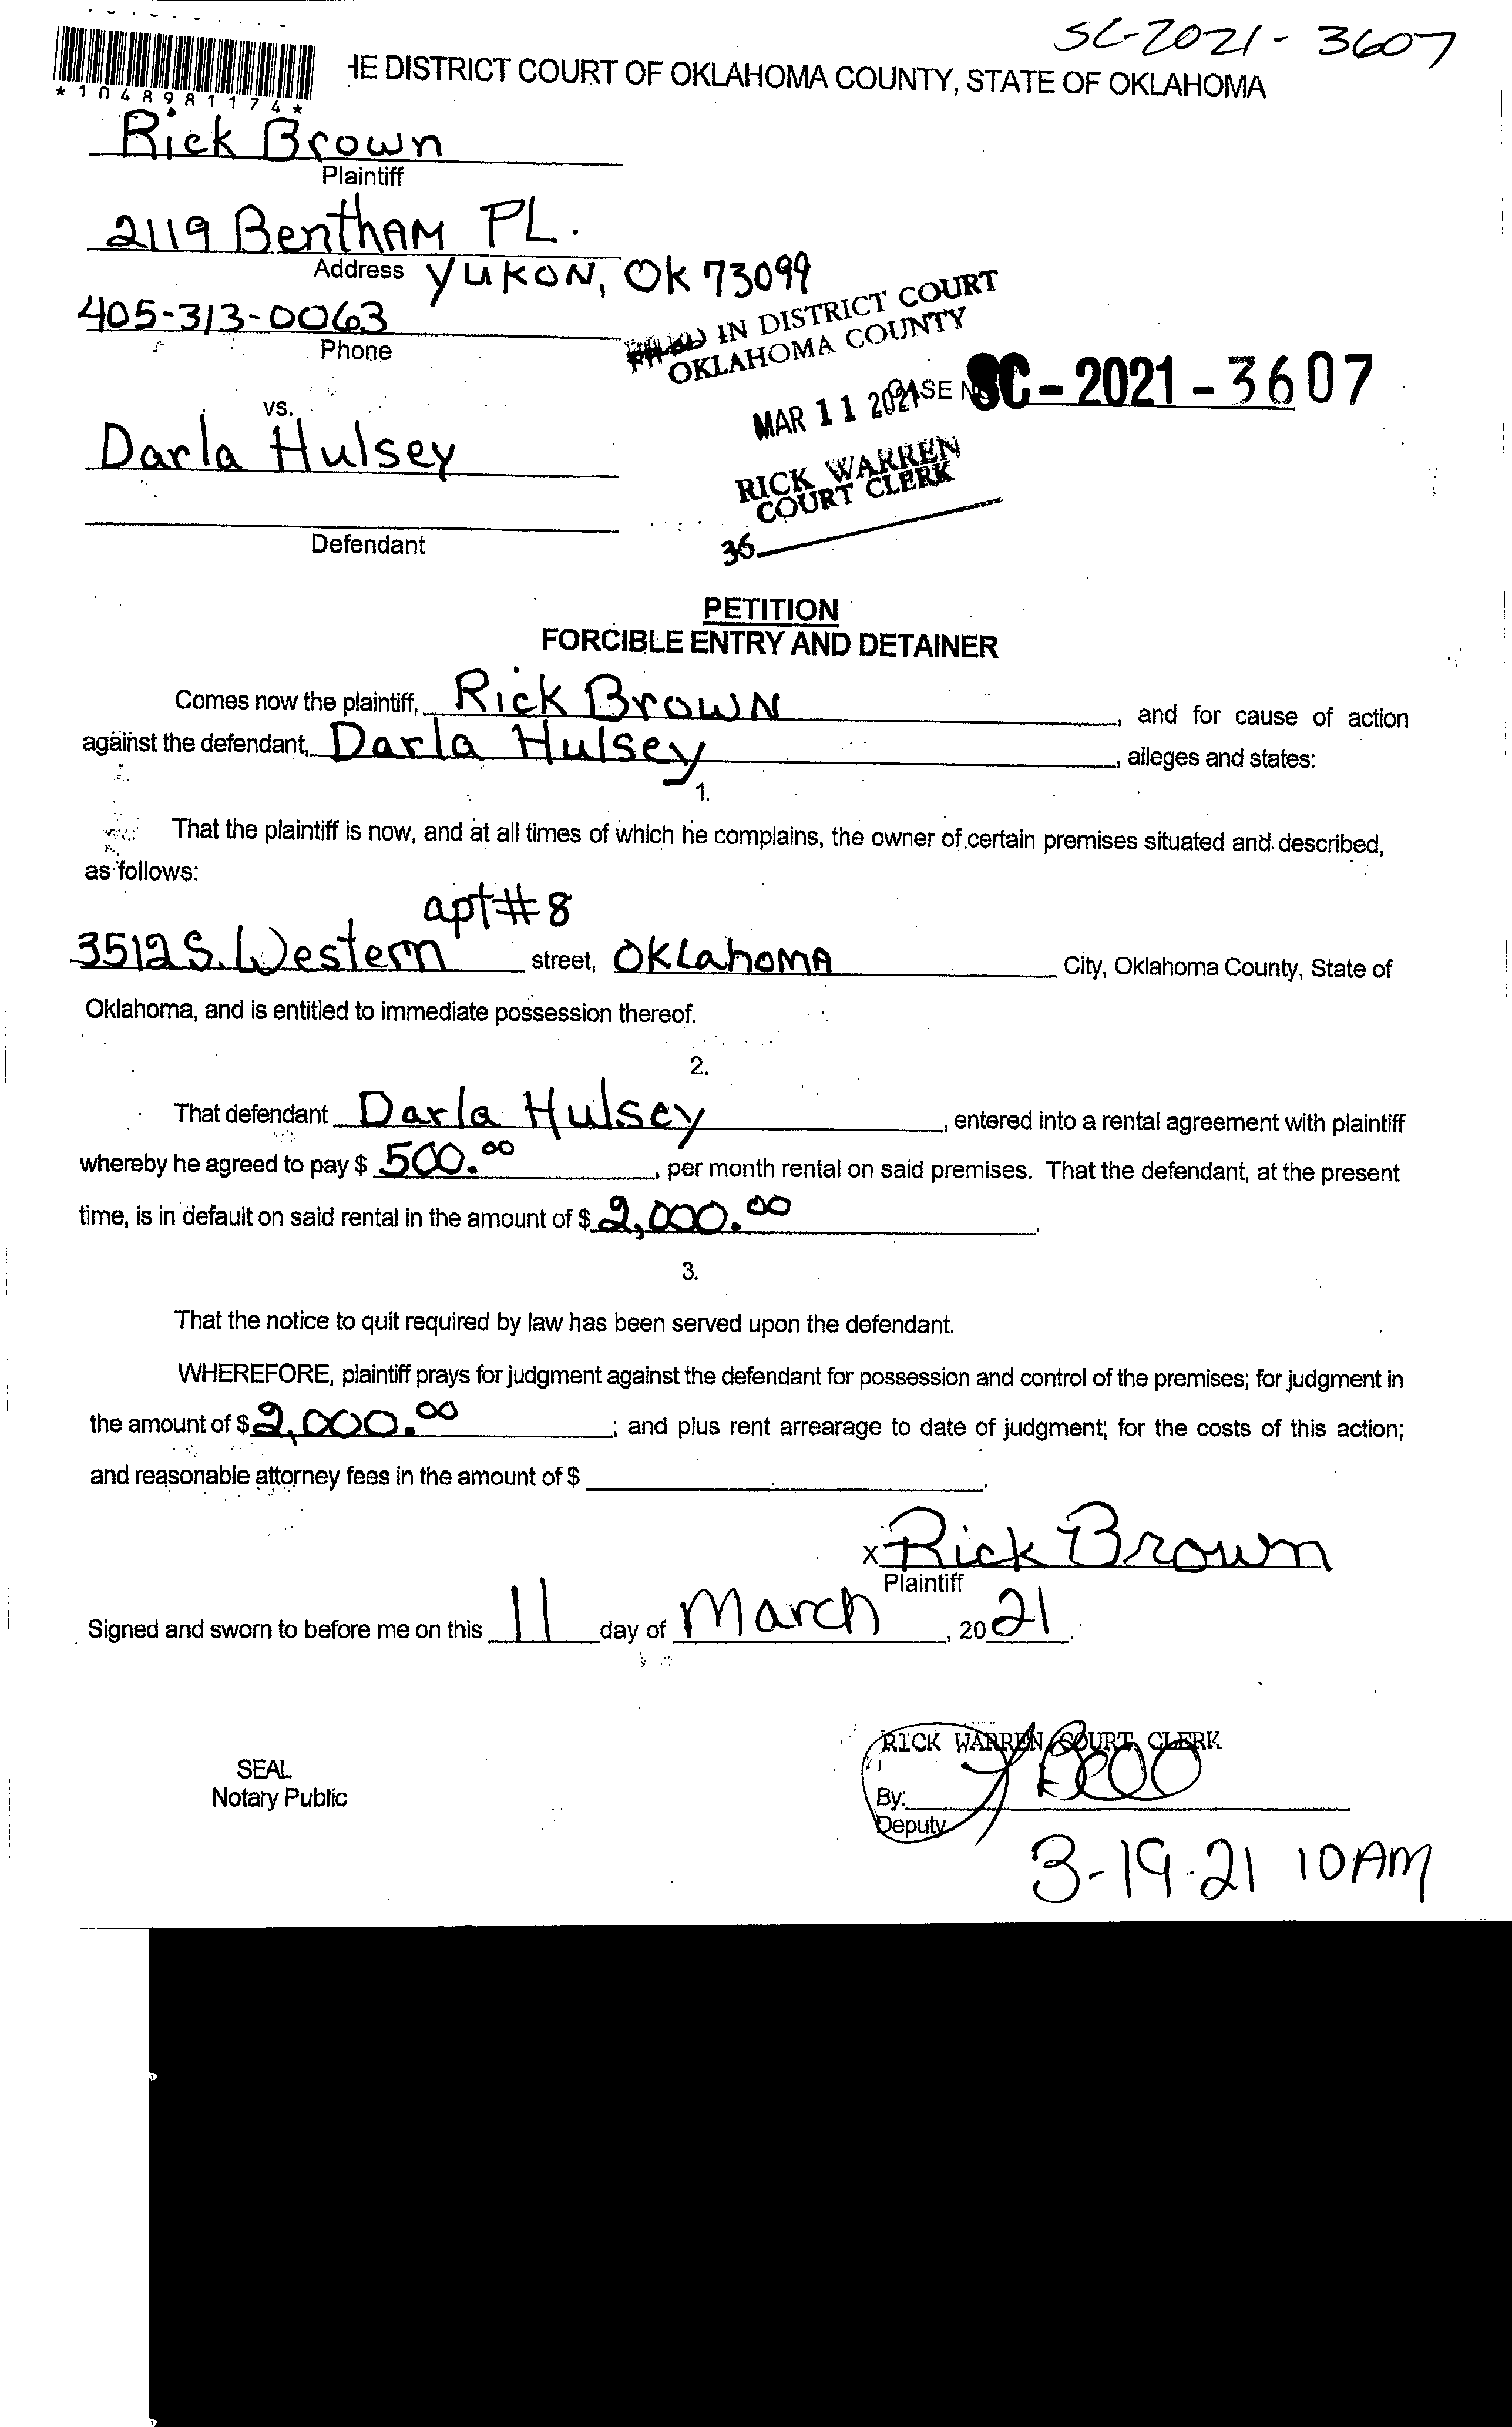 SC-2021-3607
HE DISTRICT COURT OF OKLAHOMA COUNTY, STATE OF OKLAHOMA
*1048981174*
Rick Brown
Plaintiff
2119 Bentham PL.
Address Yukon, OK 73099
405-313-0063
Phone
FILED IN DISTRICT COURT
OKLAHOMA COUNTY
MAR 11 2021
CASE NO. SC-2021-3607
RICK WARREN
COURT CLERK
36
vs.
Darla Hulsey
Defendant
PETITION
FORCIBLE ENTRY AND DETAINER
Comes now the plaintiff, Rick Brown, and for cause of action
against the defendant, Darla Hulsey, alleges and states:
1.
That the plaintiff is now, and at all times of which he complains, the owner of certain premises situated and described,
as follows:
apt#8
3512 S. Western street, Oklahoma City, Oklahoma County, State of
Oklahoma, and is entitled to immediate possession thereof.
2.
That defendant Darla Hulsey, entered into a rental agreement with plaintiff
whereby he agreed to pay $ 500.00, per month rental on said premises. That the defendant, at the present
time, is in default on said rental in the amount of $ 2,000.00.
3.
That the notice to quit required by law has been served upon the defendant.
WHEREFORE, plaintiff prays for judgment against the defendant for possession and control of the premises; for judgment in
the amount of $ 2,000.00; and plus rent arrearage to date of judgment; for the costs of this action;
and reasonable attorney fees in the amount of $ .
x Rick Brown
Plaintiff
Signed and sworn to before me on this 11 day of March, 2021.
RICK WARREN COURT CLERK
SEAL
Notary Public
By:
Deputy
3-19-21 10AM